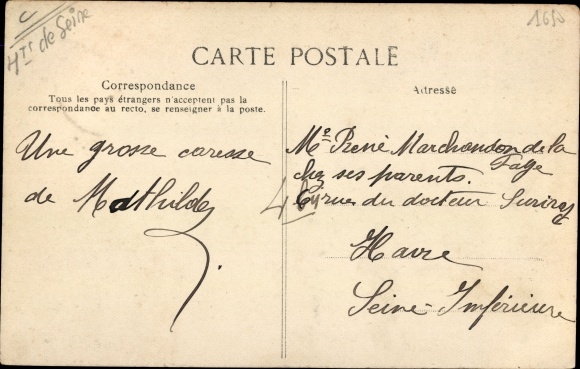 Hts de Seine
1650
CARTE POSTALE
Correspondance
Tous les pays étrangers n'acceptent pas la
correspondance au recto, se renseigner à la poste.
Adresse
Une grosse caresse
de Mathilde
Mr René Marchandon de la
Faye
chez ses parents.
6 rue du docteur Suriray
Havre
Seine-Inférieure